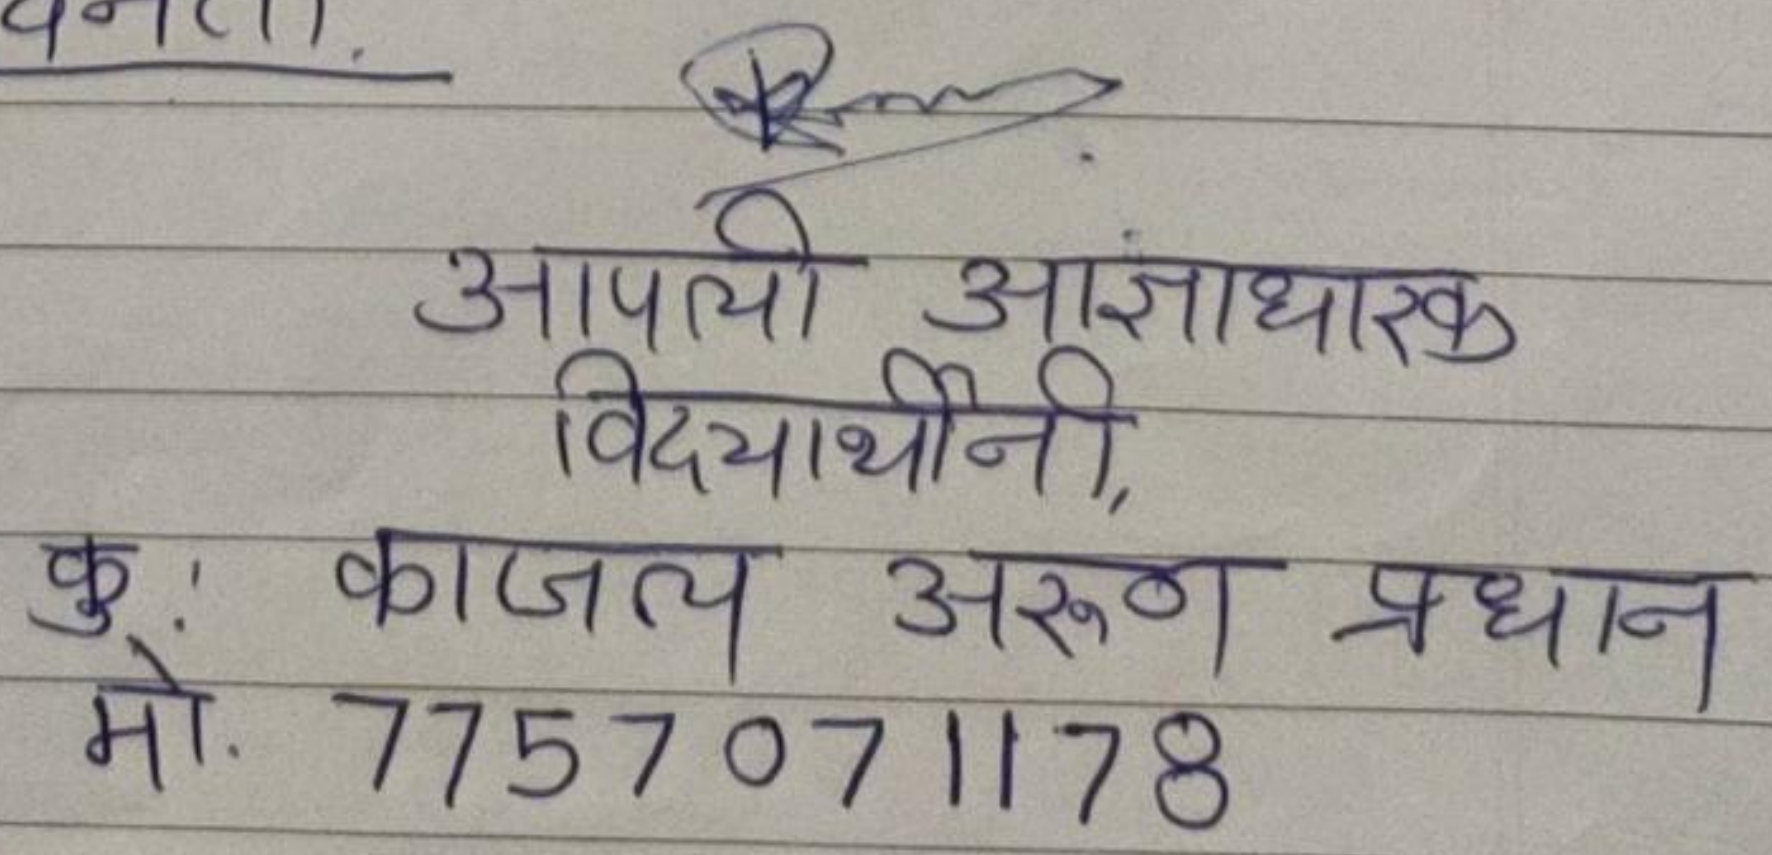 आपली आज्ञाधारक
विद्यार्थीनी,
कु: काजल अरूण प्रधान
मो. 7757071178